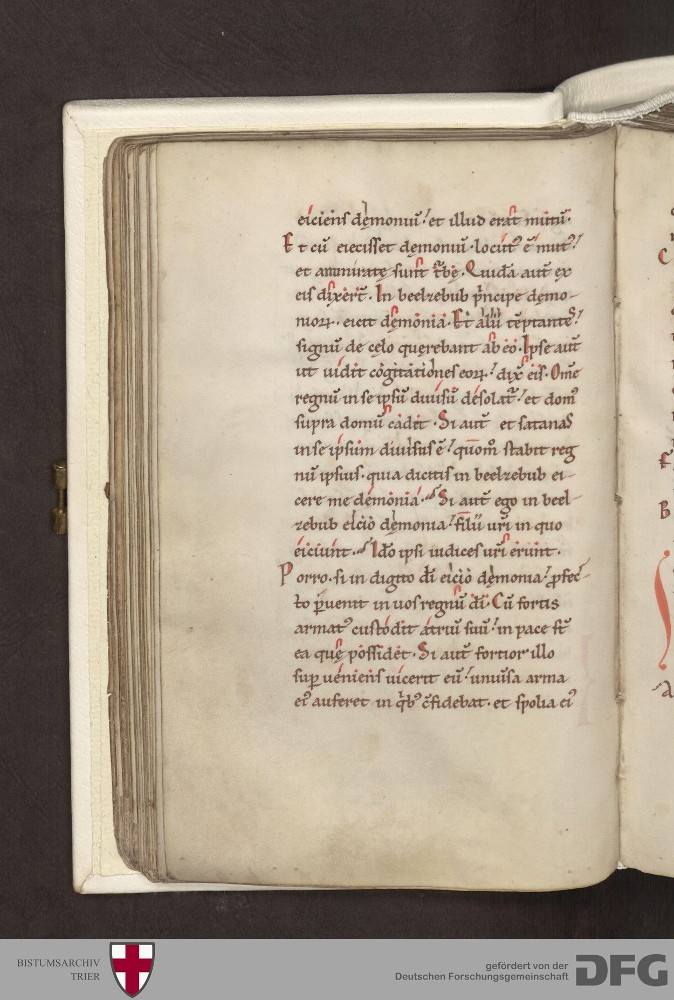 eiciens dęmoniū. et illud erat mutū.
Et cū eiecisset dęmoniū. locutꝰ ē mutꝰ.
et ammiratę sunt t̄bę. Quidā aut̄ ex
eis dixer̄t. In beelzebub p̄ncipe dęmo-
nioꝝ. eicit dęmonia. Et alii tēptantes.
signū de cęlo querebant ab eo. Ipse aut̄
ut uidit cogitationes eoꝝ. dix̄ eis. Om̄e
regnū in se ipsū diuisū desolat̄. et domꝰ
supra domū cadet. Si aut̄ et satanas
in se ipsum diuisus ē. quom̄ stabit reg
nū ipsius. quia dicitis in beelzebub ei-
cere me dęmonia. Si aut̄ ego in beel-
zebub eicio dęmonia. filii ur̄i in quo
eiciunt. Ido ipsi iudices ur̄i erunt.
Porro. si in digito dī eicio dęmonia. ꝓfec-
to p̄uenit in uos regnū dī. Cū fortis
armatꝰ custodit atriū suū. in pace st̄
ea quę possidet. Si aut̄ fortior illo
suꝑ ueniens uicerit eū. uniūsa arma
eiꝰ auferet in q̄bꝰ c̄fidebat. et spolia eiꝰ
BISTUMSARCHIV
TRIER
gefördert von der
Deutschen Forschungsgemeinschaft
DFG